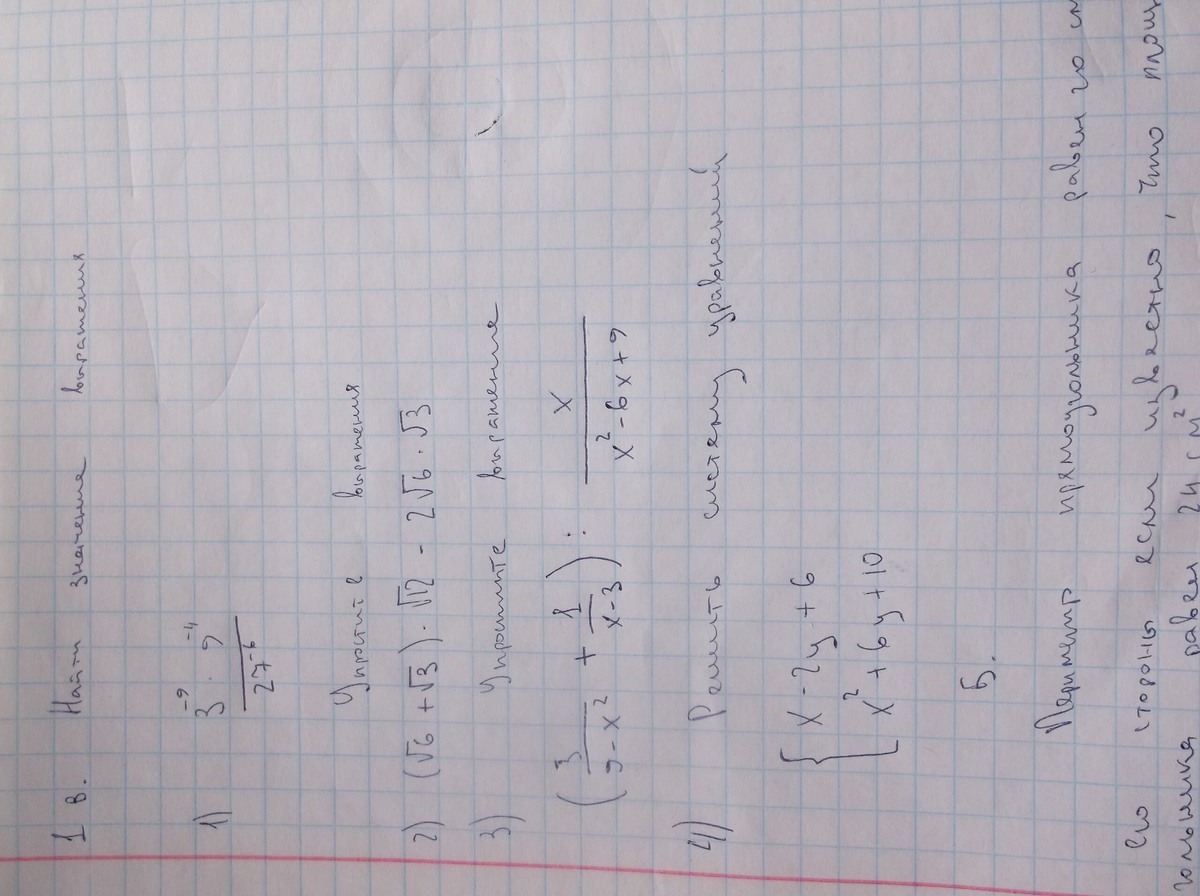 1 в. Найти значение выражения
1) 3⁻⁹ · 9⁻⁴ / 27⁻⁶
Упростите выражения
2) (√6 + √3) · √12 - 2√6 · √3
3) Упростите выражение
(3/(9 - x²) + 1/(x - 3)) : x/(x² - 6x + 9)
4) Решить систему уравнений
{ x - 2y + 6
x² + 6y + 10
5.
Периметр прямоугольника равен
его стороны если известно, что
равен 24 см²